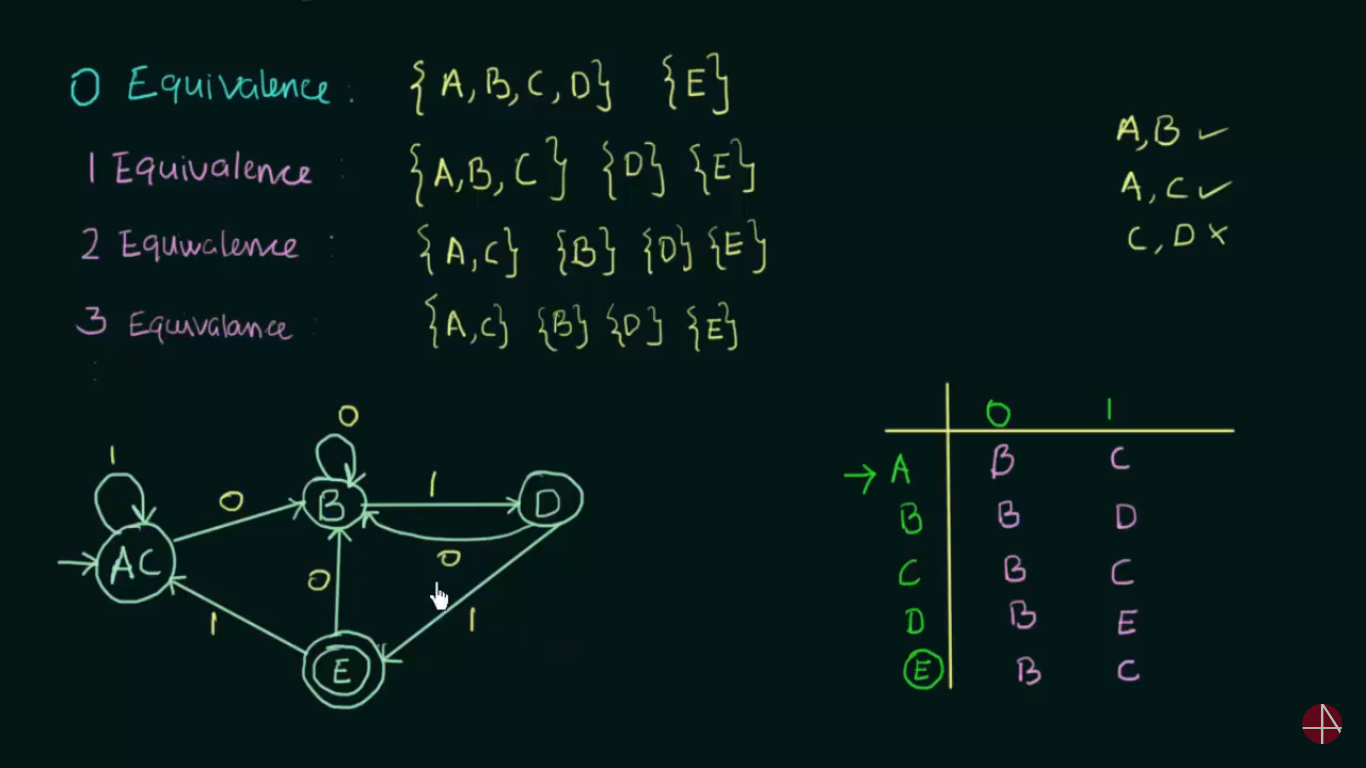 0 Equivalence : {A, B, C, D} {E}
1 Equivalence : {A, B, C} {D} {E}
2 Equivalence : {A, C} {B} {D} {E}
3 Equivalance : {A, C} {B} {D} {E}
:
A, B ✓
A, C ✓
C, D ×
0
1
0
1
B
D
AC
0
0
1
1
E
0 1
→ A B C
B B D
C B C
D B E
E B C